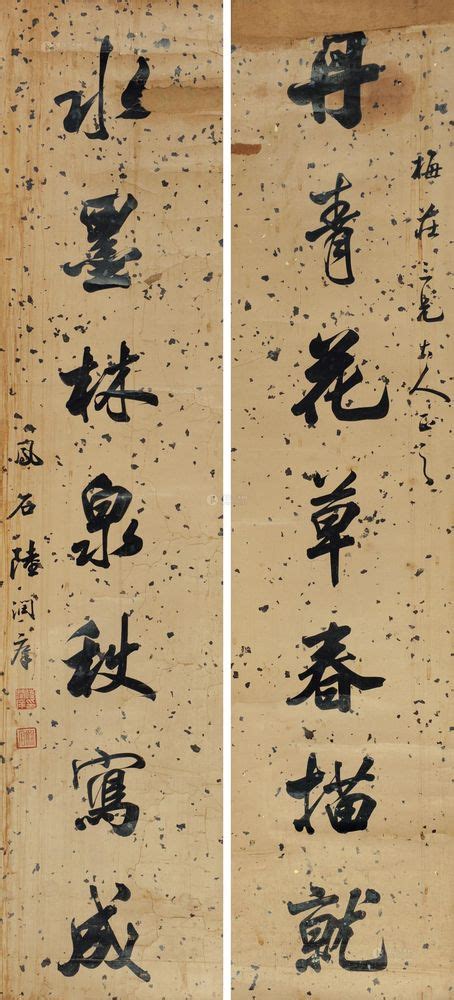 梅莊仁兄大人正之
丹青花草春描就
水墨林泉秋寫成
鳳石陸潤庠